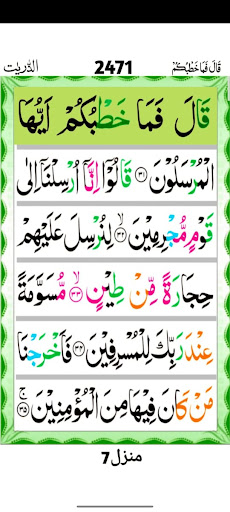 قَالَ فَمَا خَطْبُكُمْ 2471 الذّٰرِيٰت
قَالَ فَمَا خَطْبُكُمْ اَيُّهَا
الْمُرْسَلُوْنَ ﴿۳۱﴾ قَالُوْۤا اِنَّاۤ اُرْسِلْنَاۤ اِلٰى
قَوْمٍ مُّجْرِمِيْنَ ﴿۳۲﴾ۙ لِنُرْسِلَ عَلَيْهِمْ
حِجَارَةً مِّنْ طِيْنٍ ﴿۳۳﴾ۙ مُّسَوَّمَةً
عِنْدَ رَبِّكَ لِلْمُسْرِفِيْنَ ﴿۳۴﴾ فَاَخْرَجْنَا
مَنْ كَانَ فِيْهَا مِنَ الْمُؤْمِنِيْنَ ﴿۳۵﴾ۚ
منزل 7